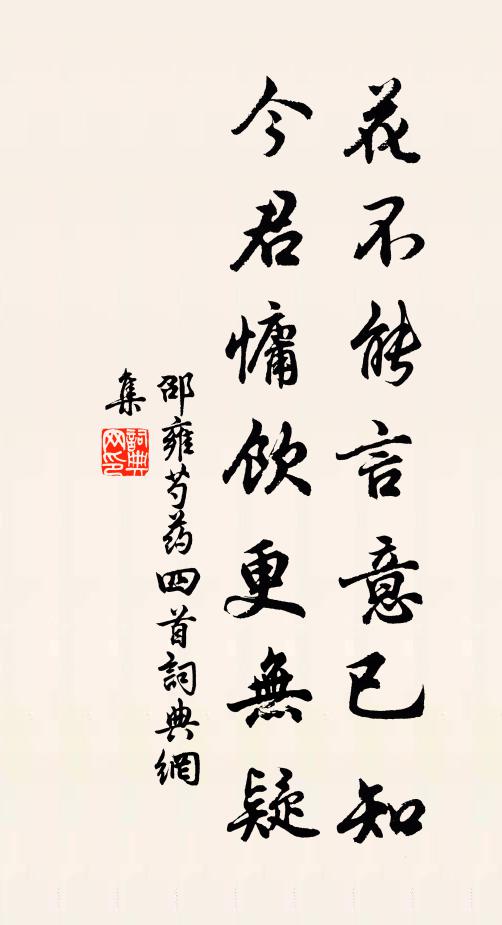 花不能言意已知
今君慵飲更無疑
邵雍芍药四首詞典網
集
詞典
网印